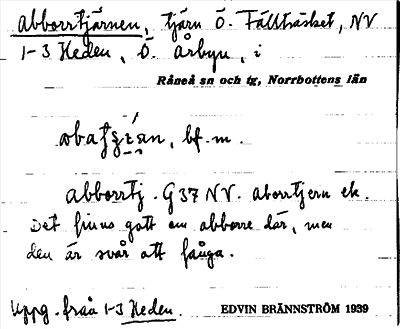 Abborrtjärnen, tjärn Ö. Fällträsket, NV
1-3 Heden, Ö. Årbyn, i
Råneå sn och tg, Norrbottens län
bf. m.
Abborrtj. G37 NV. aborrtjern ek.
Det finns gott om abborre där, men
den är svår att fånga.
Uppg. från 1-3 Heden. EDVIN BRÄNNSTRÖM 1939